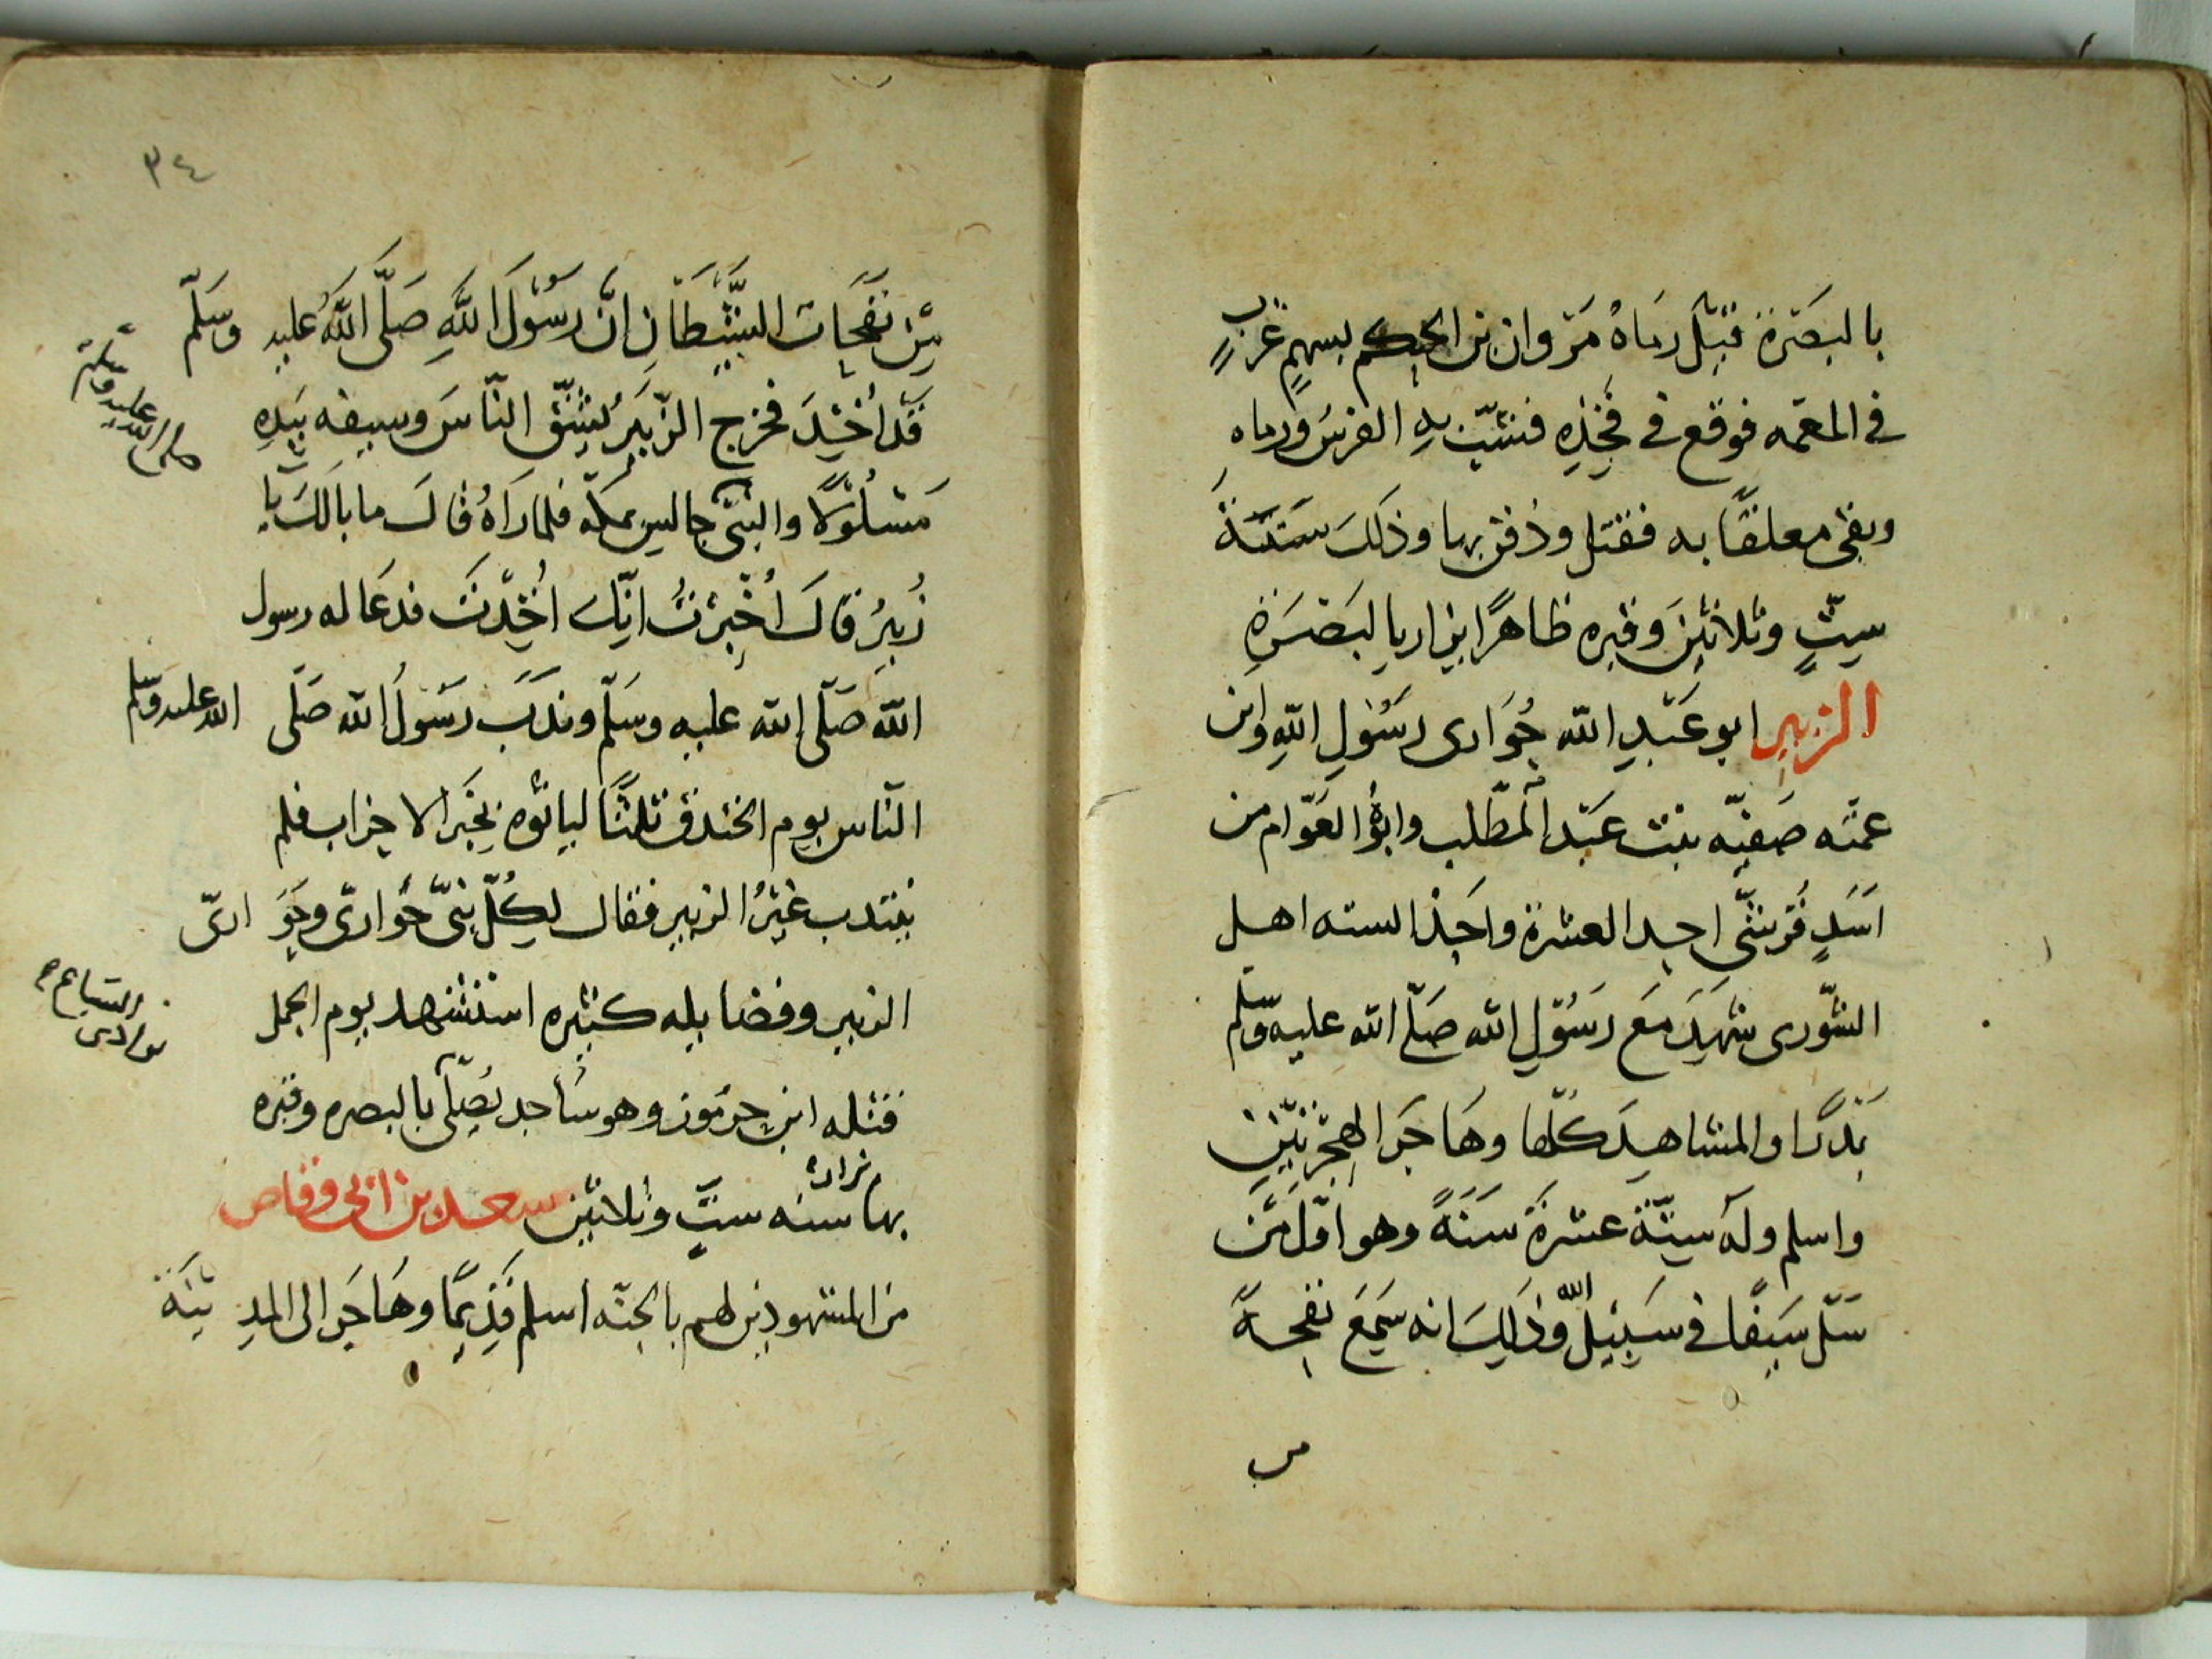 بالبصرة قيل رماه مروان بن الحكم بسهم غرب
في المعمه فوقع في فخذه فنشب به الفرس ورماه
وبقى معلقًا به فقتل ودفن بها وذلك سَنَةَ
سِتٍّ وثلاثين وقبره ظاهرًا يزار بالبَصْرَةِ
الزبير ابو عَبْدِ الله حُوَارى رسُولِ اللهِ وابن
عمته صَفيّه بنت عَبْد المطّلب وابوُه العَوّام من
اَسَدٍ قُريشٍ احد العشرة واحد السته اهل
الشّورى شهِدَ مَعَ رَسُوْلِ الله صَلّى الله عليه وسلّم
بَدْرًا والمشاهِدَ كلّها وهَاجَر الهِجْرتيْن
واسلم وله ستّة عشرةَ سَنَةً وهو اوّل مَنْ
سَلّ سَيفًا في سَبيْل الله وذلِكَ انه سَمِعَ نفحةً
من
٣٤
مِنْ نَفَحَات الشَّيْطَانِ انَّ رسُوْلَ اللهِ صَلَّى اللهُ عليه وسَلّم
قَد اُخِذَ فخرج الزّبَيرُ يَشقّ النّاسَ وسيفه بيَدِهِ
مَسْلُوْلًا والنبى جالس بمكة فلما رَاَهُ قالَ ما بالَكَ يا
صلى الله عليه وسلم
زُبيرُ قالَ اُخْبِرْتُ انّكَ اُخِذْتَ فدعَا له رسول
الله صَلّى الله عليه وسَلّم وندَبَ رَسُوْلُ الله صَلّى الله عليه وسلم
النّاس يوم الخندق ثلثًا لياتوْه بخبَر الاحزاب فلم
ينتدب غيْرُ الزبير فقال لِكُلّ نبىّ حُوارىّ وحَوَارىّ
الزبير وفضايله كثيره استشهد يوم الجمل
السباع
بوادى
قتله ابن جرموز وهو سَاجد يُصَلّى بالبصره وقبره
بها يزار سنه ستٍّ وثلاثين سعد بن ابى وقاص
من المشهودين لهم بالجنّه اسلم قَدِيمًا وهَاجَر الى المدِيْنَة